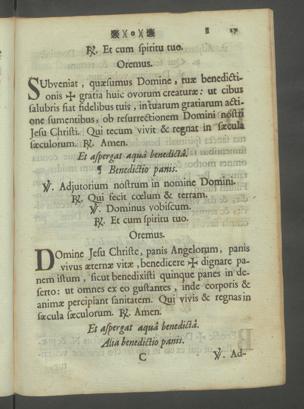 ℟. Et cum spiritu tuo.
Oremus.
SUbveniat, quæsumus Domine, tuæ benedicti-
onis ✠ gratia huic ovorum creaturæ: ut cibus
salubris fiat fidelibus tuis, in tuarum gratiarum acti-
one sumentibus, ob resurrectionem Domini nostri
Jesu Christi. Qui tecum vivit & regnat in sæcula
sæculorum. ℟. Amen.
Et aspergat aquâ benedictâ.
¶ Benedictio panis.
℣. Adjutorium nostrum in nomine Domini.
℟. Qui fecit cœlum & terram.
℣. Dominus vobiscum.
℟. Et cum spiritu tuo.
Oremus.
DOmine Jesu Christe, panis Angelorum, panis
vivus æternæ vitæ, benedicere ✠ dignare pa-
nem istum, sicut benedixisti quinque panes in de-
serto: ut omnes ex eo gustantes, inde corporis &
animæ percipiant sanitatem. Qui vivis & regnas in
sæcula sæculorum. ℟. Amen.
Et aspergat aquâ benedictâ.
Alia benedictio panis.
C ℣. Ad-